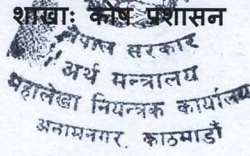 शाखाः कोष प्रशासन
नेपाल सरकार
अर्थ मन्त्रालय
महालेखा नियन्त्रक कार्यालय
अनामनगर, काठमाडौं